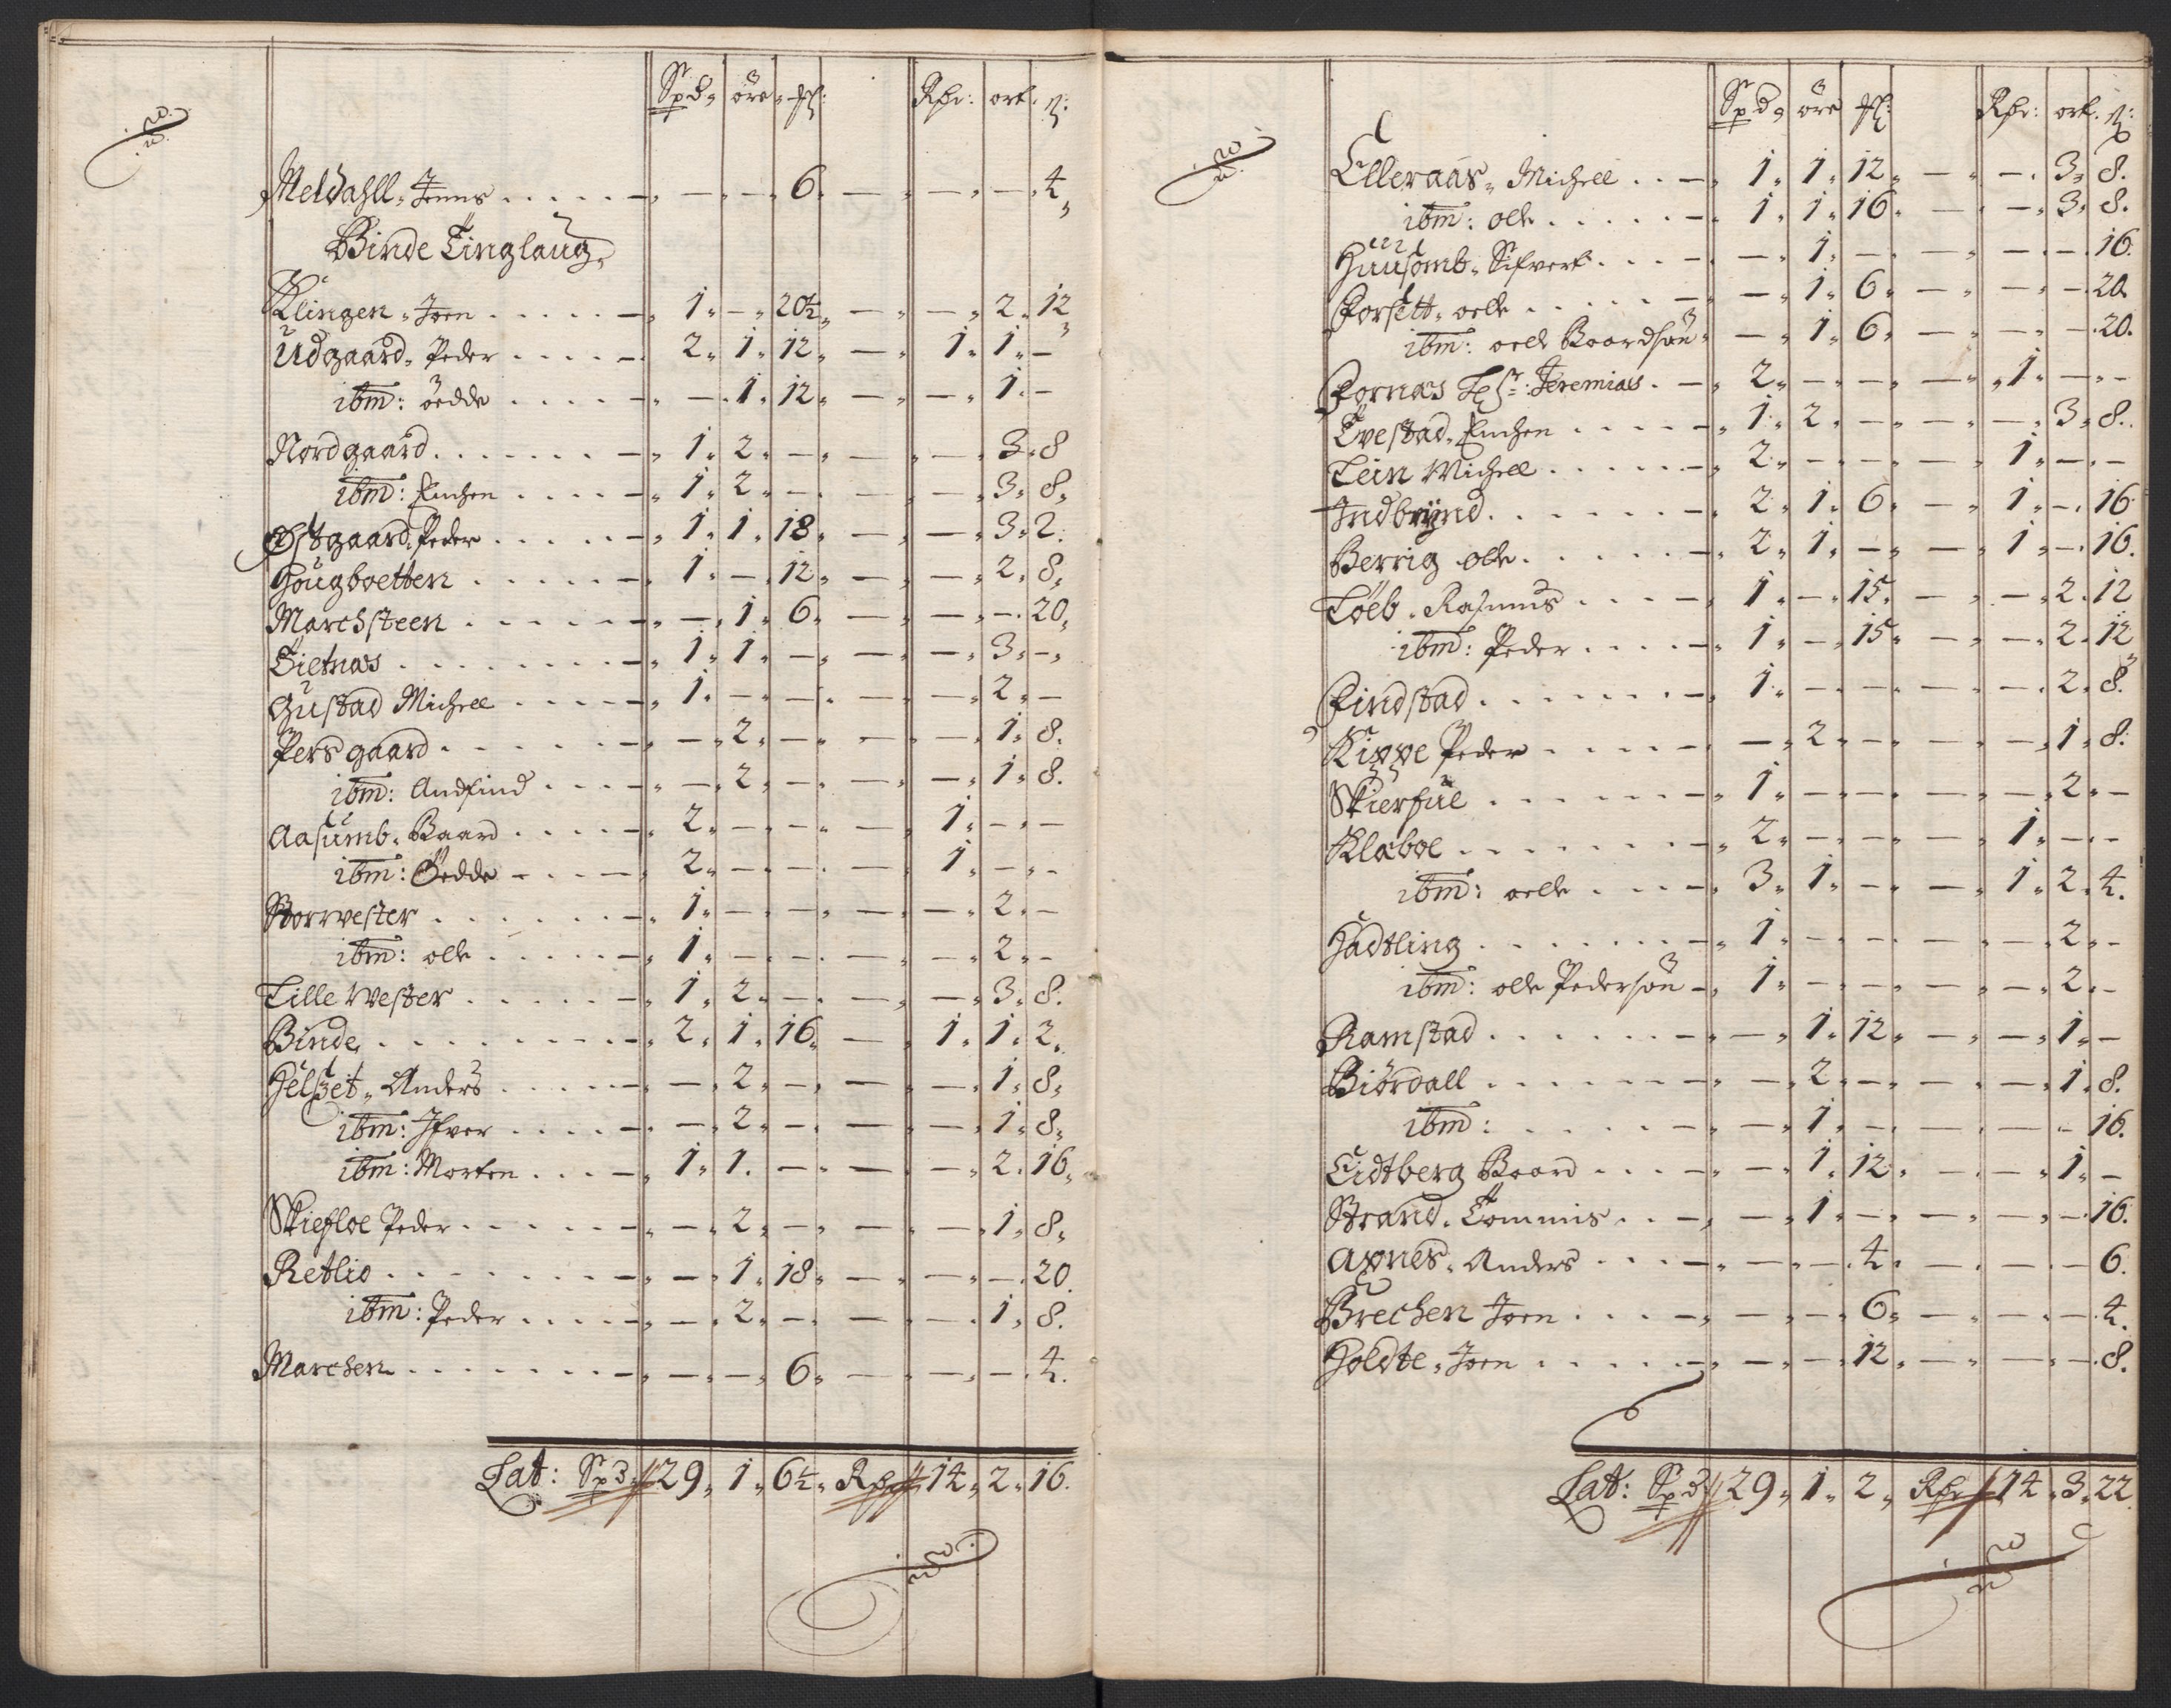 Spd, öre, ʄ: Rhr: ort. ß:
Meldahll, Jenns . . . . . — — — 6. — — — 4,
Binde Tinglaug,
Klingen, Joen . . . . . 1. — 20½, — — 2. 12
Udgaard, Peder . . . . 2. 1. 12, — 1. 1. —
ibm: öedde . . . . — 1. 12, — — 1. —
Nordgaard . . . . . . . 1. 2. — — — 3. 8
ibm: Enchen . . . . 1. 2. — — — 3. 8,
Østgaard, Peder . . . . . 1. 1. 18, — — 3. 2.
Hougboetten . . . . . . 1. — 12, — — 2. 8,
Marchsteen . . . . . . — 1. 6. — — — 20,
Tietnas . . . . . . . . 1. 1. — — — 3. —
Gustad Michell . . . . . 1. — — — — 2. —
Pers gaard . . . . . . . — 2. — — — 1. 8.
ibm: Andfind . . . . — 2. — — — 1. 8.
Aasumb, Baard . . . . . 2. — — — 1. — —
ibm: Öedde . . . . 2. — — — 1. — —
Storwester . . . . . . . 1. — — — — 2. —
ibm: olle . . . . . 1. — — — — 2. —
Lille Wester . . . . . . 1. 2. — — — 3. 8.
Binde . . . . . . . . . 2. 1. 16, — 1. 1. 2.
Helset, Anders . . . . . — 2. — — — 1. 8,
ibm: Ifver . . . . — 2. — — — 1. 8,
ibm: Morten . . . . 1. 1. — — — 2. 16,
Skiefloe Peder . . . . . — 2. — — — 1. 8,
Retlio . . . . . . . . — 1. 18, — — — 20.
ibm: Peder . . . . . — 2. — — — 1. 8.
Marchen . . . . . . . — — 6. — — — 4.
Lat: Spd 29, 1, 6½, Rhr 14, 2, 16.
Spd, öre ʄ: Rhr: ort. ß:
Elleraas, Michell . . . 1. 1. 12, — — 3. 8.
ibm: olle . . . . . 1. 1. 16. — — 3. 8.
Huusomb, Sifvert . . . . — 1. — — — — 16.
Forsett, oelle . . . . . — 1. 6. — — — 20.
ibm: oelle Baardsøn — 1. 6. — — — 20.
Fornas Jeremias . — 2. — — — 1. — —
Tvestad, Enchen . . . . . 1. 2. — — — 3. 8.
Lein Michell . . . . . . 2. — — — 1. — —
Indbrynd . . . . . . . 2. 1. 6. — 1. — 16
Berrig olle . . . . . . 2. 1. — — 1. — 16.
Löeb, Rasmus . . . . . 1. — 15. — — 2. 12
ibm: Peder . . . . . 1. — 15. — — 2. 12
Findstad . . . . . . . 1. — — — — 2. 8.
Kippe Peder . . . . . — 2. — — — 1. 8.
Skierfue . . . . . . . 1. — — — — 2. —
Klaboe . . . . . . . . 2. — — — 1. — —
ibm: oelle . . . . 3. 1. — — 1. 2. 4.
Hadtling . . . . . . . 1. — — — — 2. —
ibm: olle Pedersøn — 1. — — — — 2. —
Ramstad . . . . . . . — 1. 12. — — 1. —
Biördall . . . . . . . — 2. — — — 1. 8.
ibm: . . . . . . . — 1. — — — — 16.
Tidtberg Baard . . . . — 1. 12. — — 1. —
Strand, Tommis . . . — 1. — — — — 16.
Axnes, Anders . . . . — — 4. — — — 6.
Brechen Joen . . . . — — 6. — — — 4.
Holdte, Joen . . . . . — — 12. — — — 8.
Lat: Spd 29, 1, 2, Rhr 14, 3, 22